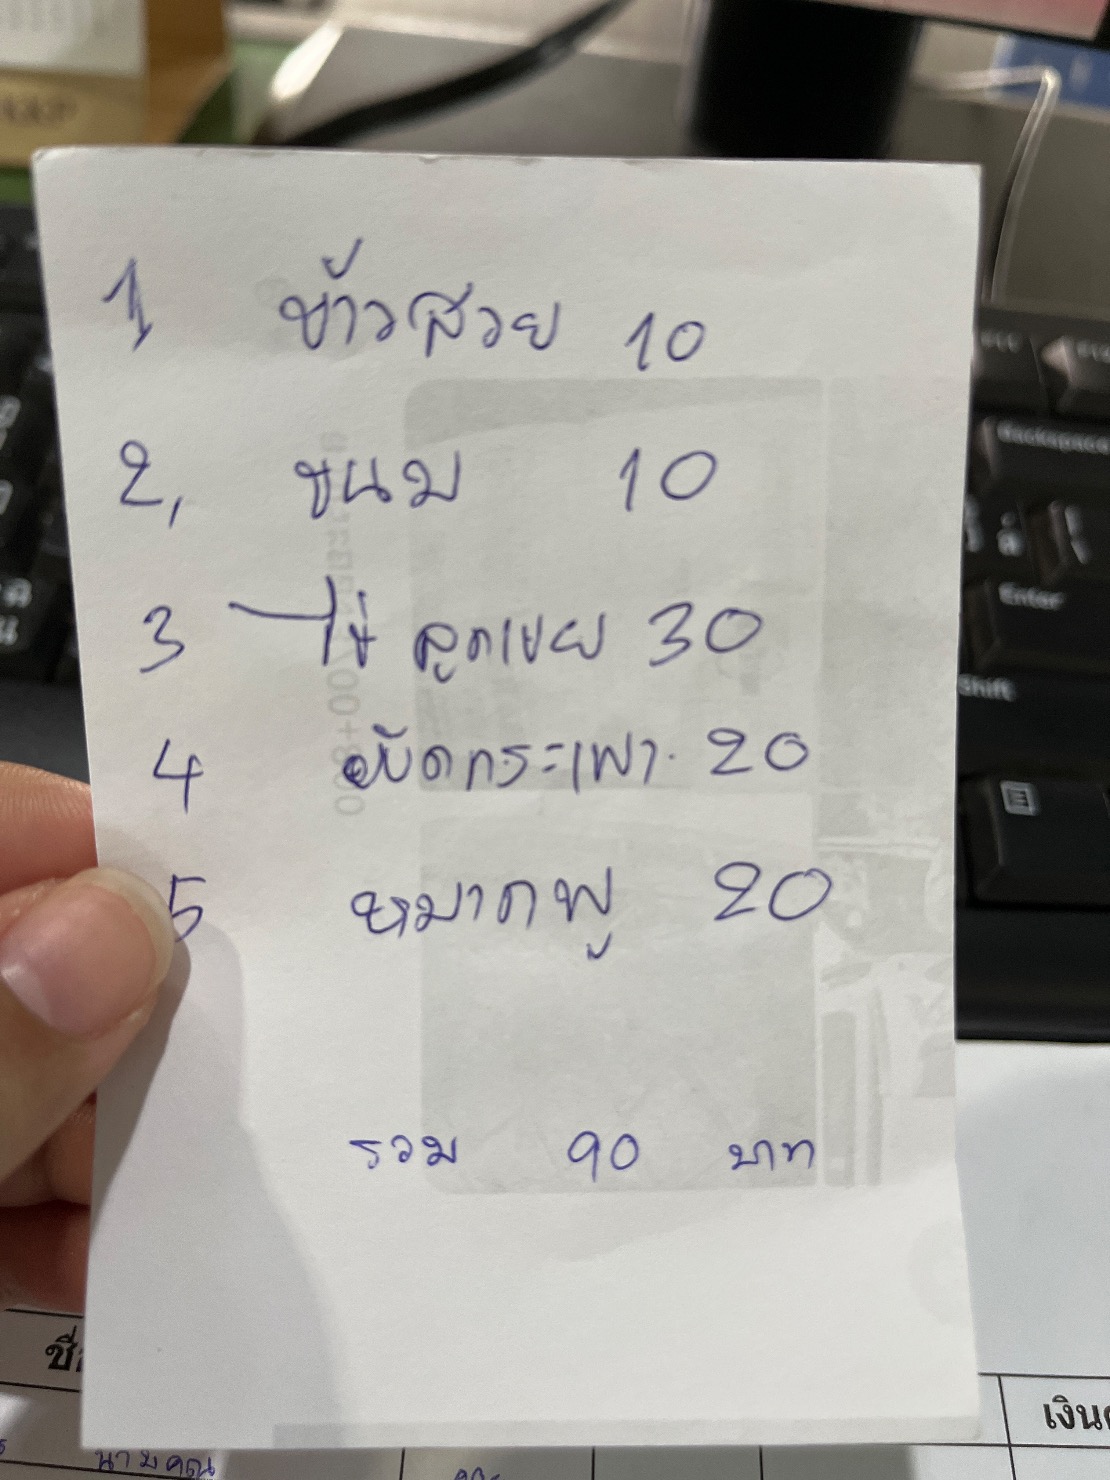 1, ข้าวสวย 10
2, ขนม 10
3 ไข่ลูกเขย 30
4 ผัดกระเพา. 20
5 หมากพู 20
รวม 90 บาท
Backspace
Enter
Shift
เงิน
นามคุณ